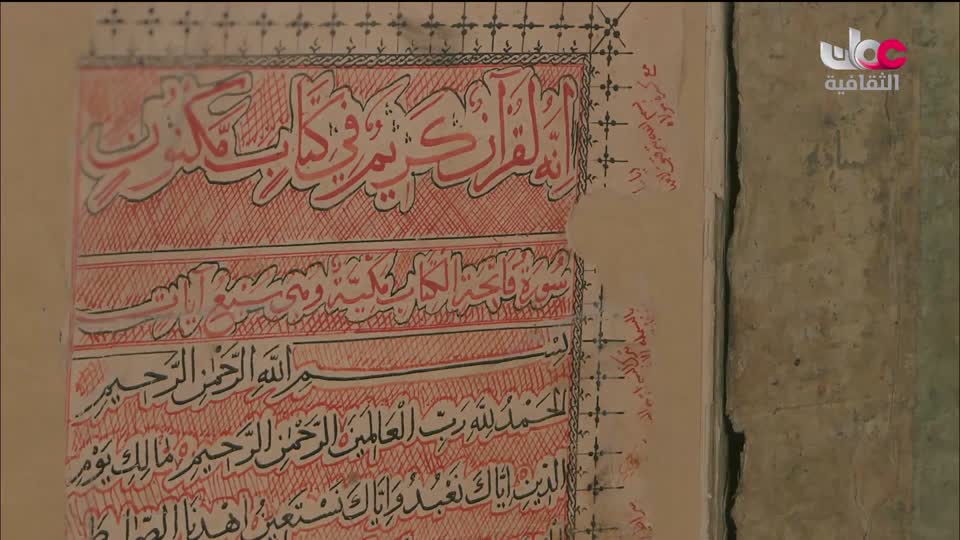 عمان
الثقافية
إنه لقرآن كريم في كتاب مكنون
سورة فاتحة الكتاب مكية وهي سبع آيات
بسم الله الرحمن الرحيم
الحمد لله رب العالمين الرحمن الرحيم مالك يوم
الدين إياك نعبد وإياك نستعين اهدنا الصراط